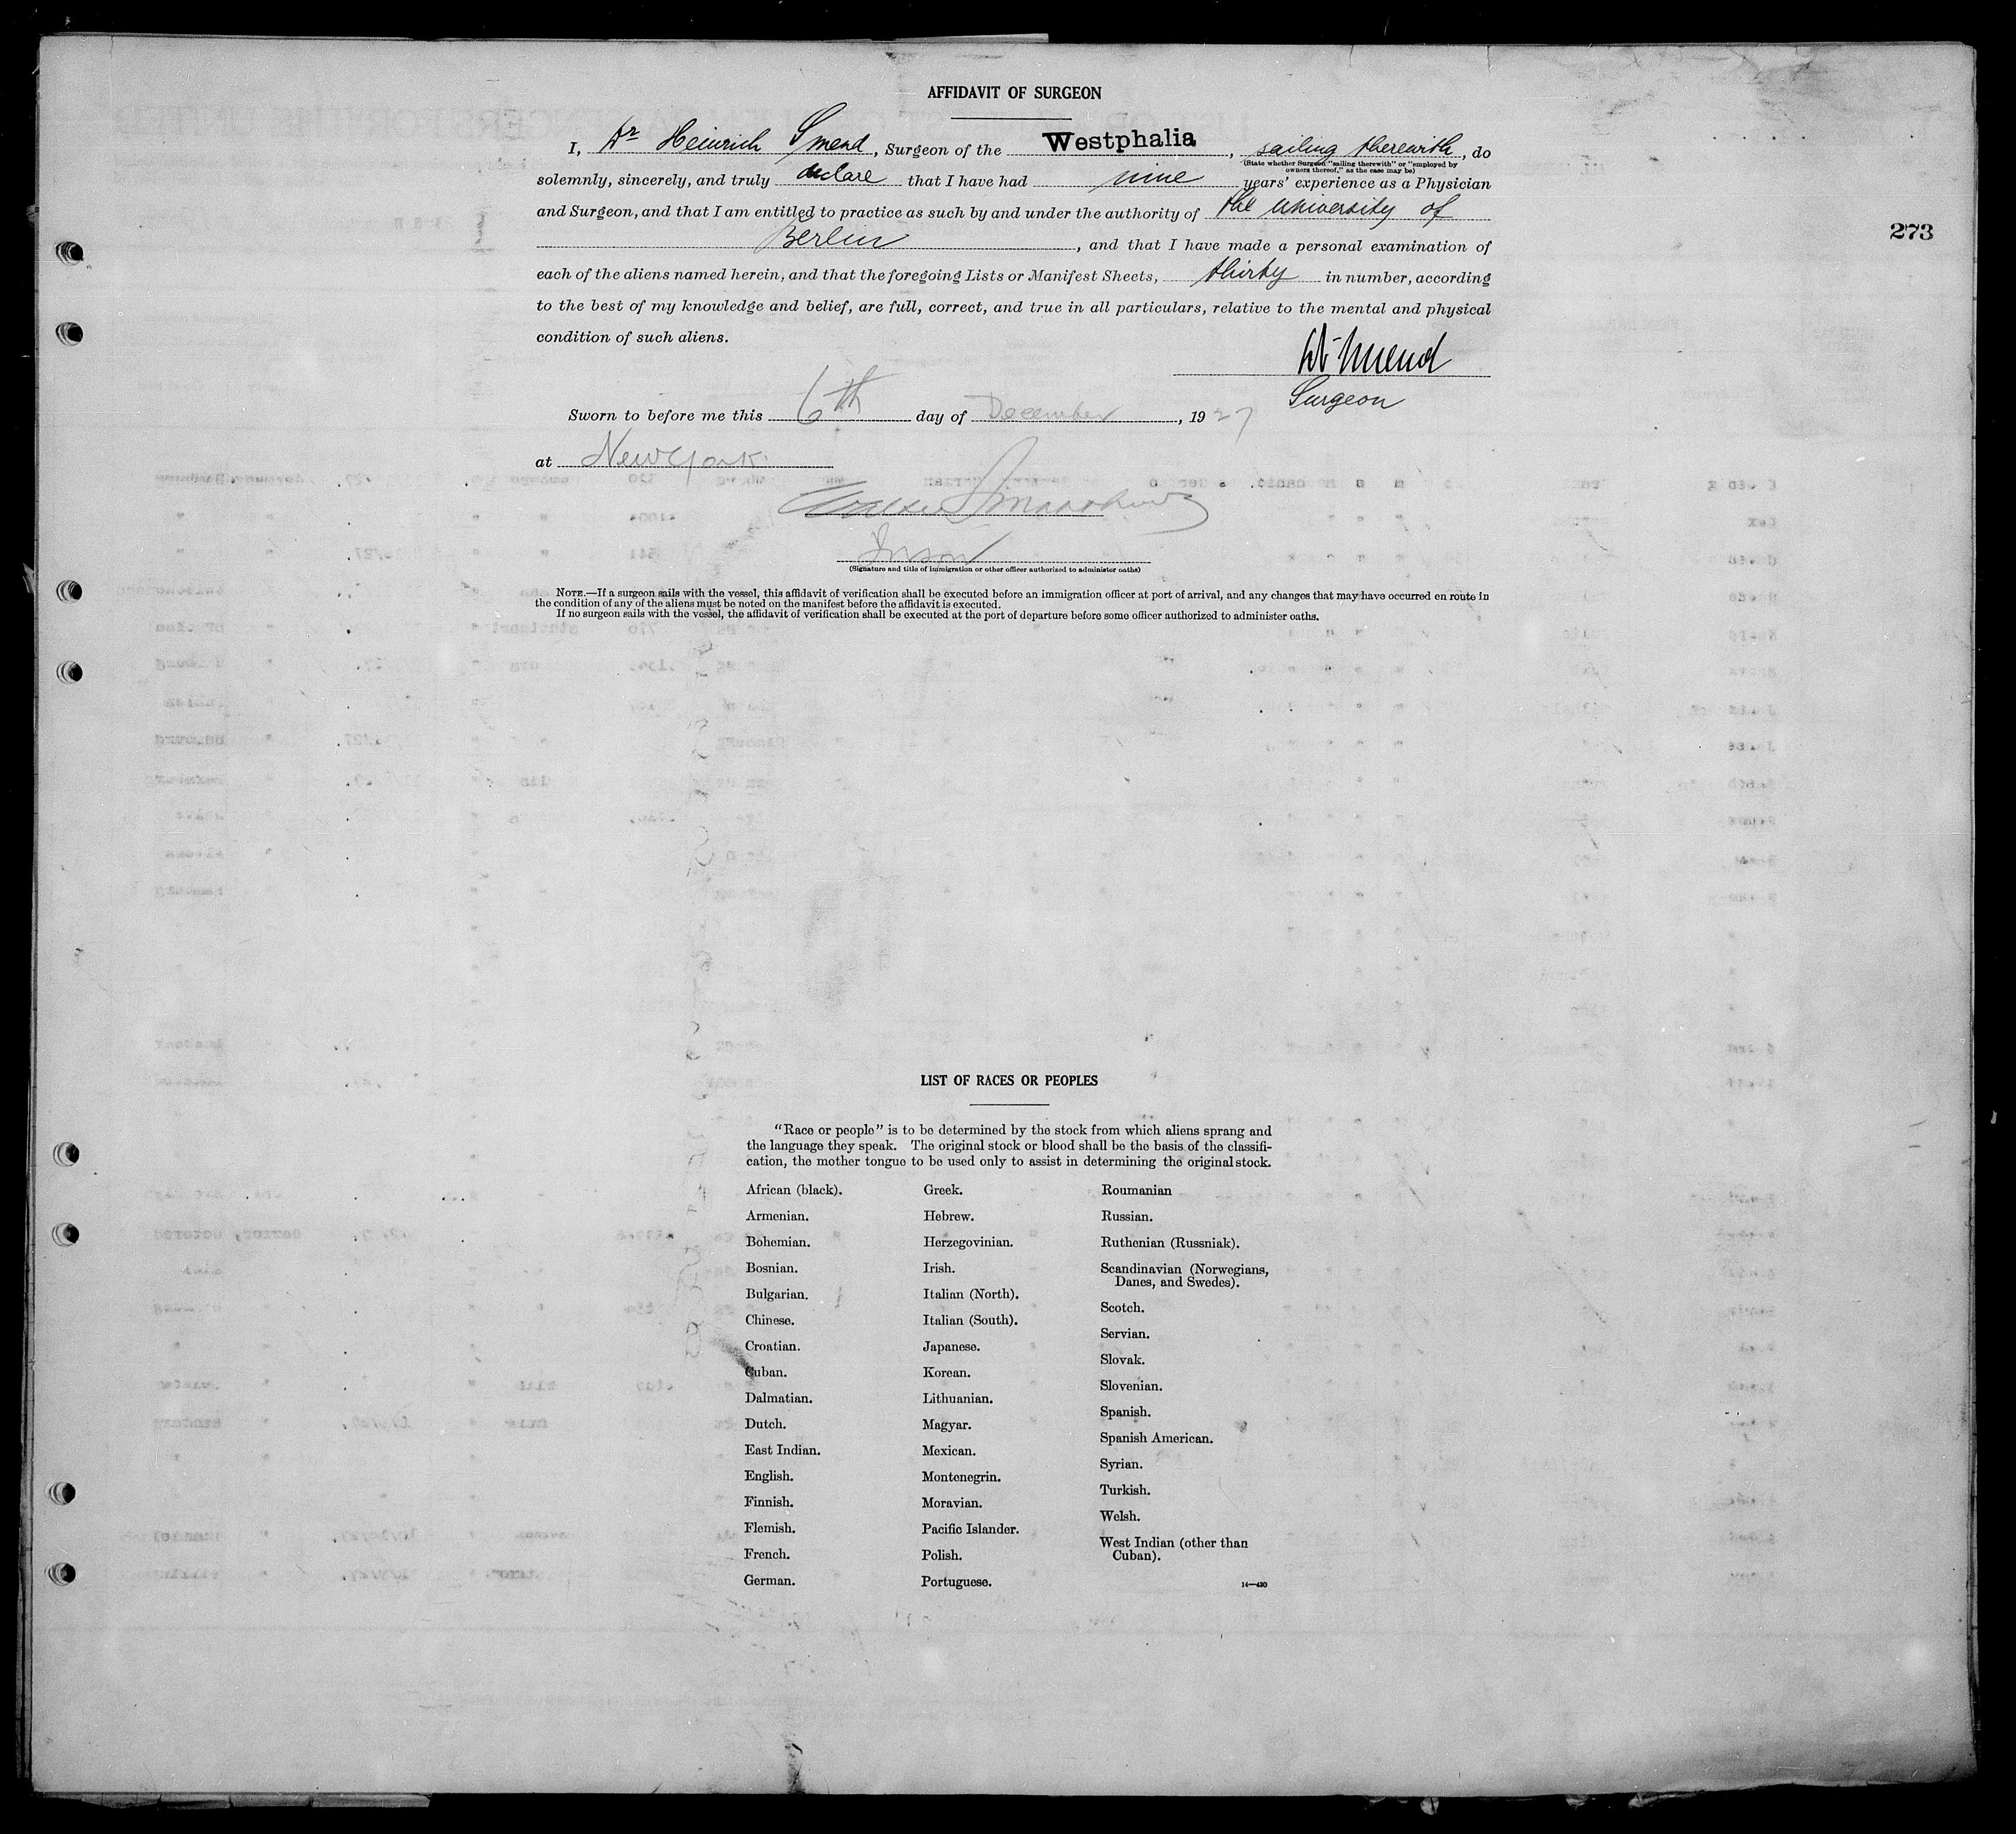 AFFIDAVIT OF SURGEON
I, Dr Heinrich Smend, Surgeon of the Westphalia, sailing therewith, do
(State whether Surgeon "sailing therewith" or "employed by
owners thereof," as the case may be)
solemnly, sincerely, and truly declare that I have had nine years' experience as a Physician
and Surgeon, and that I am entitled to practice as such by and under the authority of the University of
Berlin, and that I have made a personal examination of
273
each of the aliens named herein, and that the foregoing Lists or Manifest Sheets, thirty in number, according
to the best of my knowledge and belief, are full, correct, and true in all particulars, relative to the mental and physical
condition of such aliens.
Dr Smend
Surgeon
Sworn to before me this 6th day of December, 1927
at New York.
(Signature and title of immigration or other officer authorized to administer oaths)
NOTE.—If a surgeon sails with the vessel, this affidavit of verification shall be executed before an immigration officer at port of arrival, and any changes that may have occurred en route in
the condition of any of the aliens must be noted on the manifest before the affidavit is executed.
If no surgeon sails with the vessel, the affidavit of verification shall be executed at the port of departure before some officer authorized to administer oaths.
LIST OF RACES OR PEOPLES
"Race or people" is to be determined by the stock from which aliens sprang and
the language they speak. The original stock or blood shall be the basis of the classifi-
cation, the mother tongue to be used only to assist in determining the original stock.
African (black).
Armenian.
Bohemian.
Bosnian.
Bulgarian.
Chinese.
Croatian.
Cuban.
Dalmatian.
Dutch.
East Indian.
English.
Finnish.
Flemish.
French.
German.
Greek.
Hebrew.
Herzegovinian.
Irish.
Italian (North).
Italian (South).
Japanese.
Korean.
Lithuanian.
Magyar.
Mexican.
Montenegrin.
Moravian.
Pacific Islander.
Polish.
Portuguese.
Roumanian
Russian.
Ruthenian (Russniak).
Scandinavian (Norwegians,
Danes, and Swedes).
Scotch.
Servian.
Slovak.
Slovenian.
Spanish.
Spanish American.
Syrian.
Turkish.
Welsh.
West Indian (other than
Cuban).
14—430